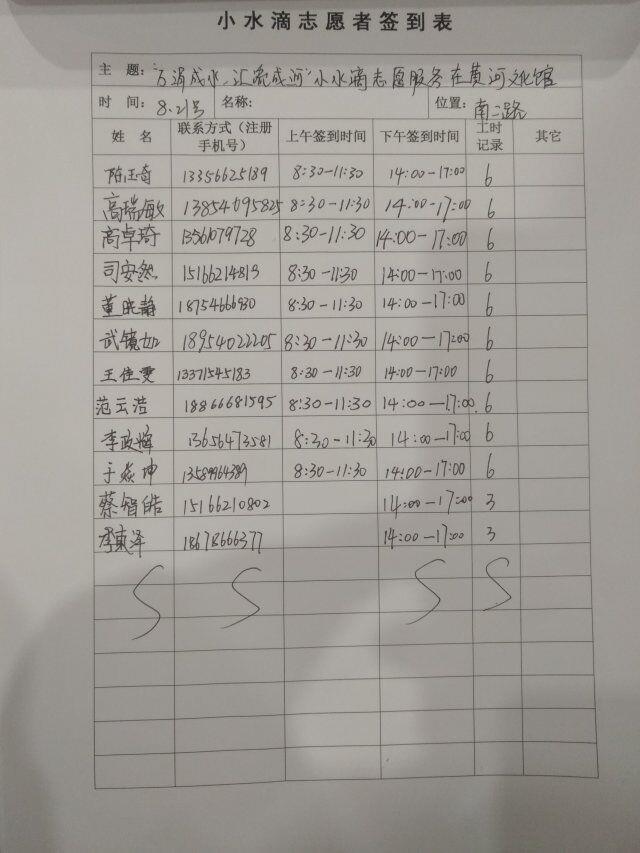 小水滴志愿者签到表
主 题: "百涓成水,汇流成河"小水滴志愿服务在黄河文化馆
时 间: 8.21号 名称: 位置: 南二路
姓 名 联系方式（注册手机号） 上午签到时间 下午签到时间 工时记录 其它
陈玉奇 13356625189 8:30-11:30 14:00-17:00 6
高瑞敏 13854695825 8:30-11:30 14:00-17:00 6
高卓琦 13561079728 8:30-11:30 14:00-17:00 6
司安然 15166214813 8:30-11:30 14:00-17:00 6
董晓静 18754666930 8:30-11:30 14:00-17:00 6
武镜如 18954022205 8:30-11:30 14:00-17:00 6
王佳雯 13371545183 8:30-11:30 14:00-17:00 6
范云浩 18866681595 8:30-11:30 14:00-17:00. 6
李政辉 13656473581 8:30-11:30 14:00-17:00 6
于焱坤 13589964389 8:30-11:30 14:00-17:00 6
蔡智皓 15166210802 14:00-17:00 3
季東泽 18678666377 14:00-17:00 3